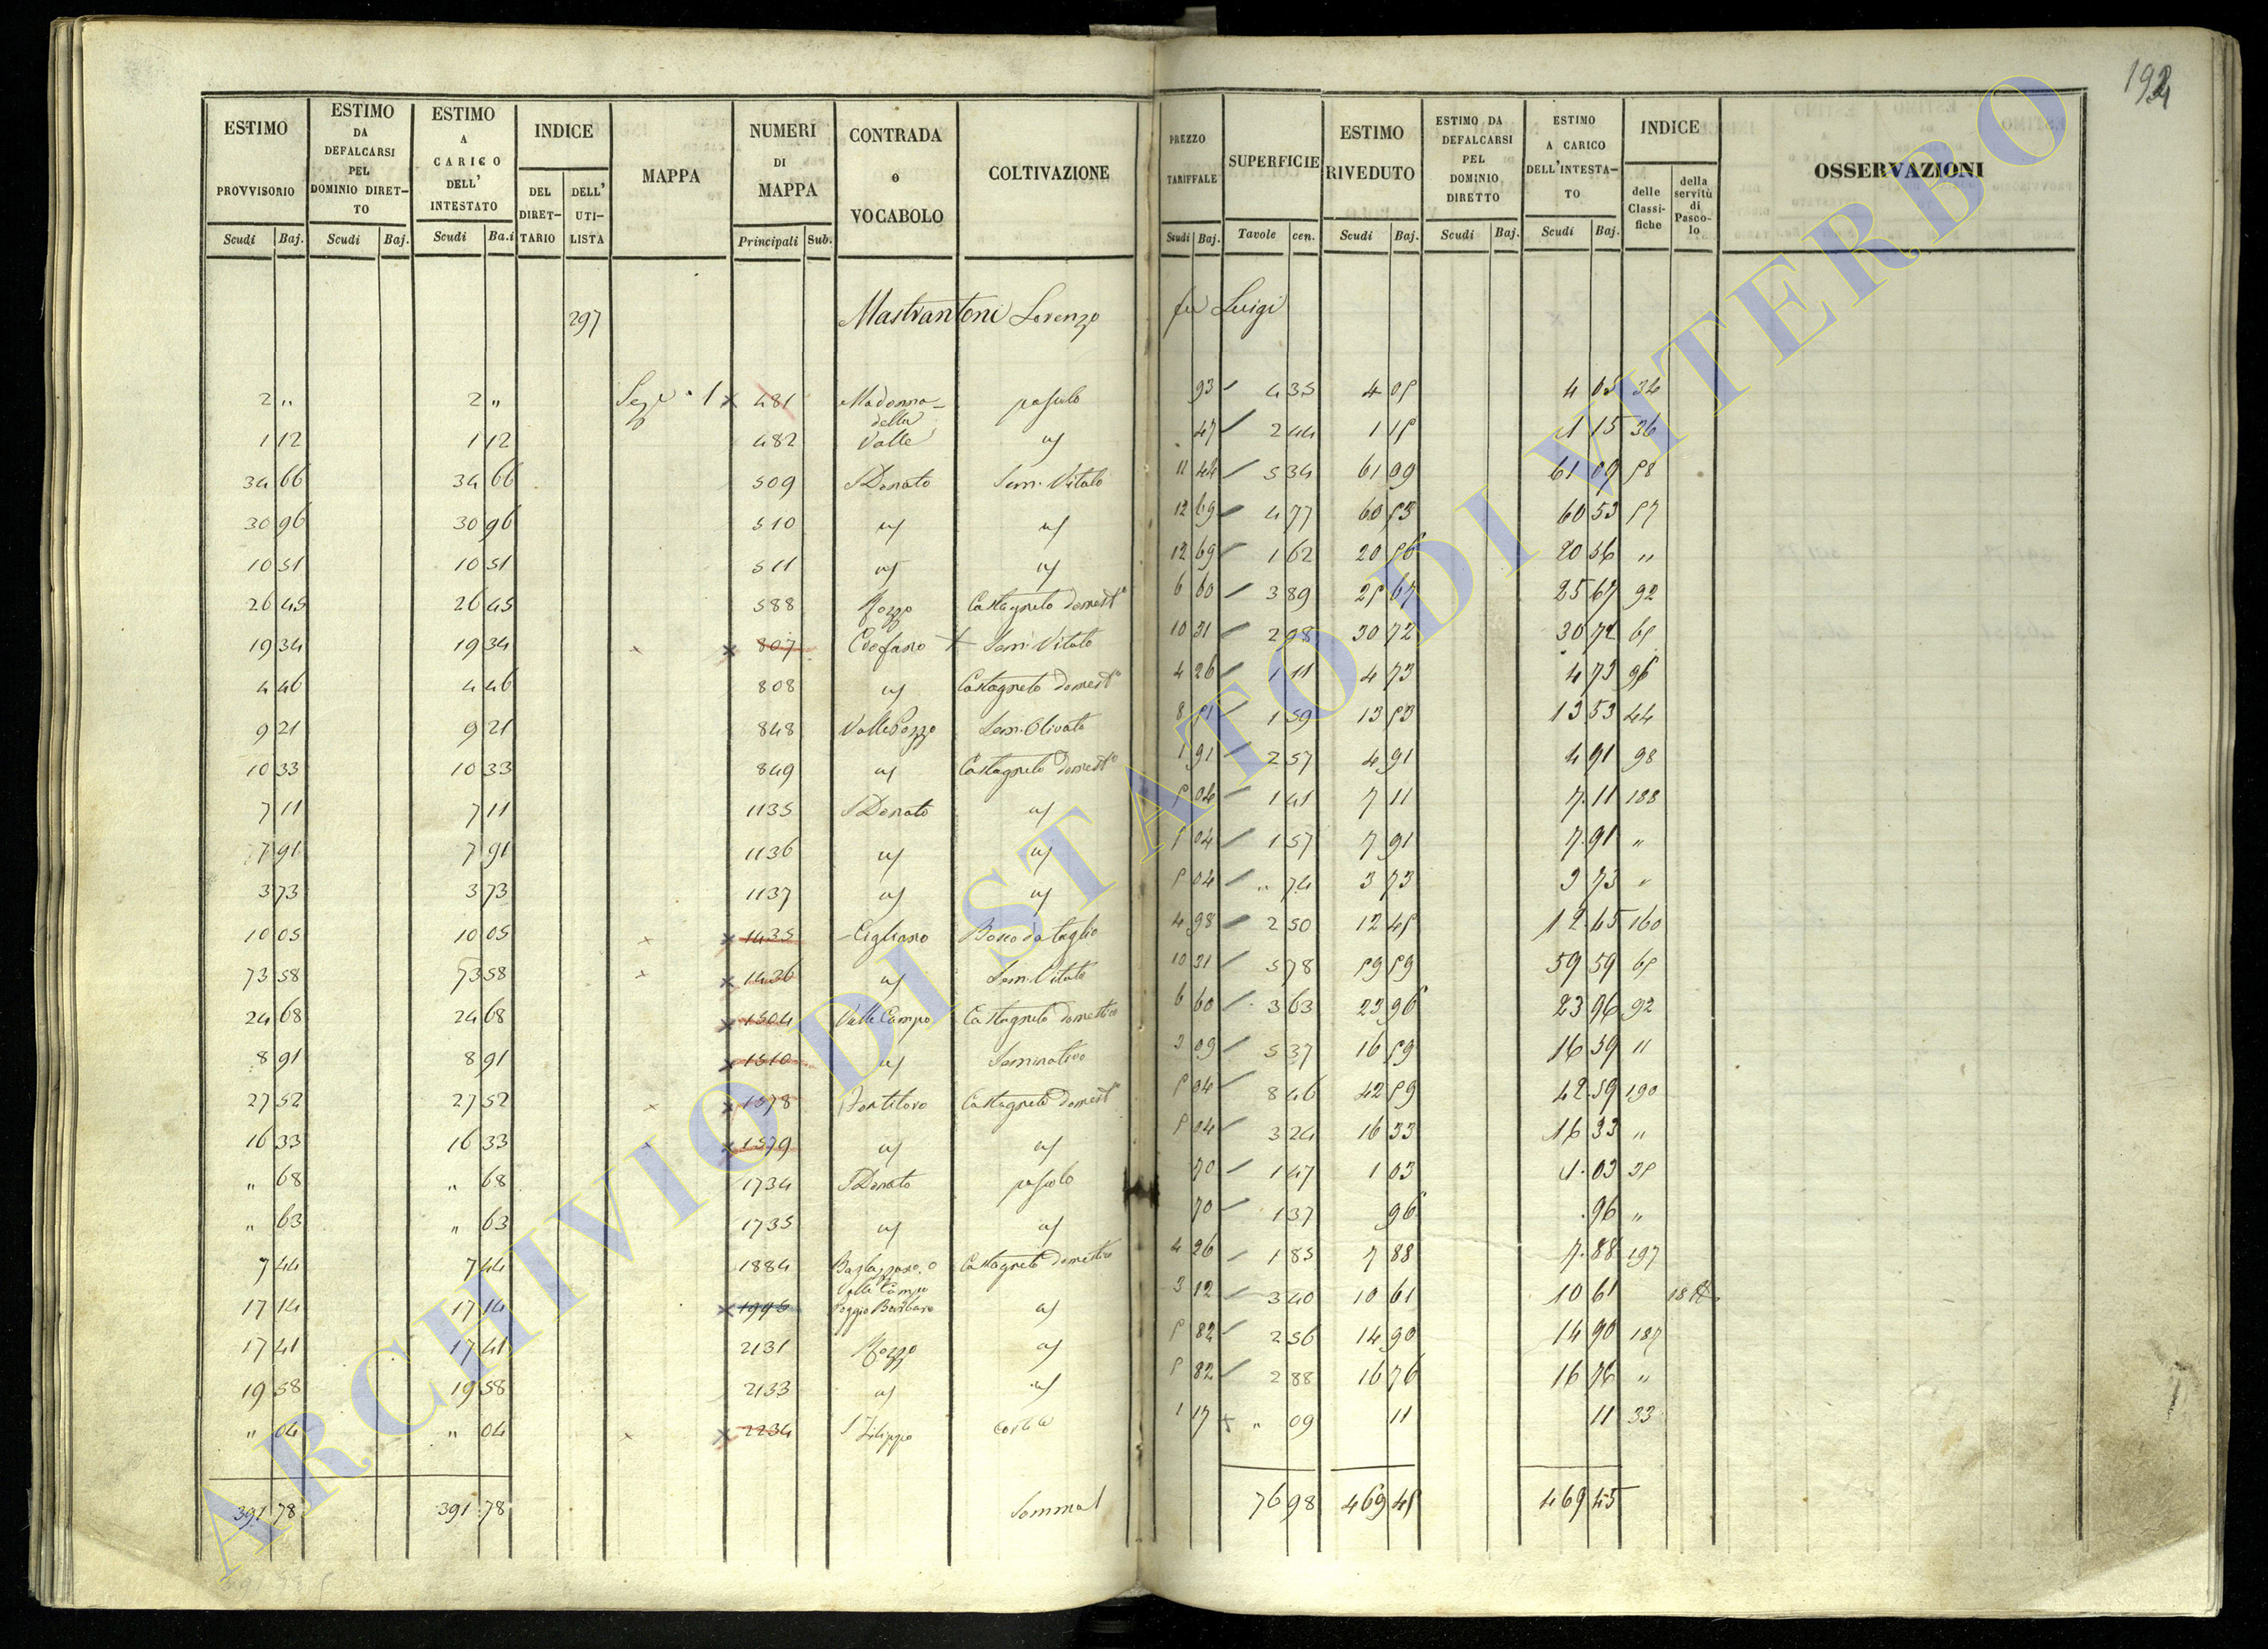 192
ESTIMO PROVVISORIO Scudi Baj.
ESTIMO DA DEFALCARSI PEL DOMINIO DIRET-TO Scudi Baj.
ESTIMO A CARICO DELL' INTESTATO Scudi Ba.i
INDICE DEL DIRET-TARIO DELL' UTI-LISTA
MAPPA
NUMERI DI MAPPA Principali Sub.
CONTRADA o VOCABOLO
COLTIVAZIONE
PREZZO TARIFFALE Scudi Baj.
SUPERFICIE Tavole cen.
ESTIMO RIVEDUTO Scudi Baj.
ESTIMO DA DEFALCARSI PEL DOMINIO DIRETTO Scudi Baj.
ESTIMO A CARICO DELL'INTESTA-TO Scudi Baj.
INDICE delle Classi-fiche della servitù di Pasco-lo
OSSERVAZIONI
297 Mastrantoni Lorenzo fu Luigi
2 " 2 " 1 481 Madonna della pascolo 93 4 35 4 05 4 05 34
1 12 1 12 482 Valle 47 2 44 1 15 1 15 36
34 66 34 66 509 S Donato Sem. Vitato 11 44 5 34 61 09 61 09 58
30 96 30 96 510 12 69 4 77 60 53 60 53 57
10 51 10 51 511 12 69 1 62 20 56 20 56 "
26 45 26 45 588 Castagneto domest° 6 60 3 89 25 67 25 67 92
19 34 19 34 807 Sem. Vitato 10 31 2 98 30 72 30 72 65
4 46 4 46 808 Castagneto domest° 4 26 1 11 4 73 4 73
9 21 9 21 848 Valle Pozzo Sem. Olivato 8 51 1 59 13 53 13 53 44
10 33 10 33 849 Castagneto domest° 1 91 2 57 4 91 4 91 98
7 11 7 11 1135 S Donato 5 04 1 41 7 11 7 11 188
7 91 7 91 1136 5 04 1 57 7 91 7 91 "
3 73 3 73 1137 5 04 " 74 3 73 3 73 "
10 05 10 05 1435 Cigliano Bosco da taglio 4 98 2 50 12 45 12 45 160
73 58 73 58 1436 Sem. Vitato 10 31 5 78 59 59 59 59 65
24 68 24 68 1504 Valle Campo Castagneto domestico 6 60 3 63 23 96 23 96 92
8 91 8 91 1510 Seminativo 3 09 5 37 16 59 16 59 11
27 52 27 52 1578 Castagneto domest° 5 04 8 46 42 59 42 59 190
16 33 16 33 1579 5 04 3 24 16 33 16 33 "
" 68 " 68 1734 S Donato pascolo 70 1 47 1 03 1 03 35
" 63 " 63 1735 70 1 37 96 96 "
7 44 7 44 1884 Valle Campo Castagneto domestico 4 26 1 85 7 88 7 88 197
17 14 17 14 1996 Poggio Barbaro 3 12 3 40 10 61 10 61
17 41 17 41 2131 5 82 2 56 14 90 14 90 187
19 58 19 58 2133 5 82 2 88 16 76 16 76 "
" 04 " 04 2234 S Filippo 1 17 " 09 11 11 33
391 78 391 78 Somma 76 98 469 45 469 45
ARCHIVIO DI STATO DI VITERBO